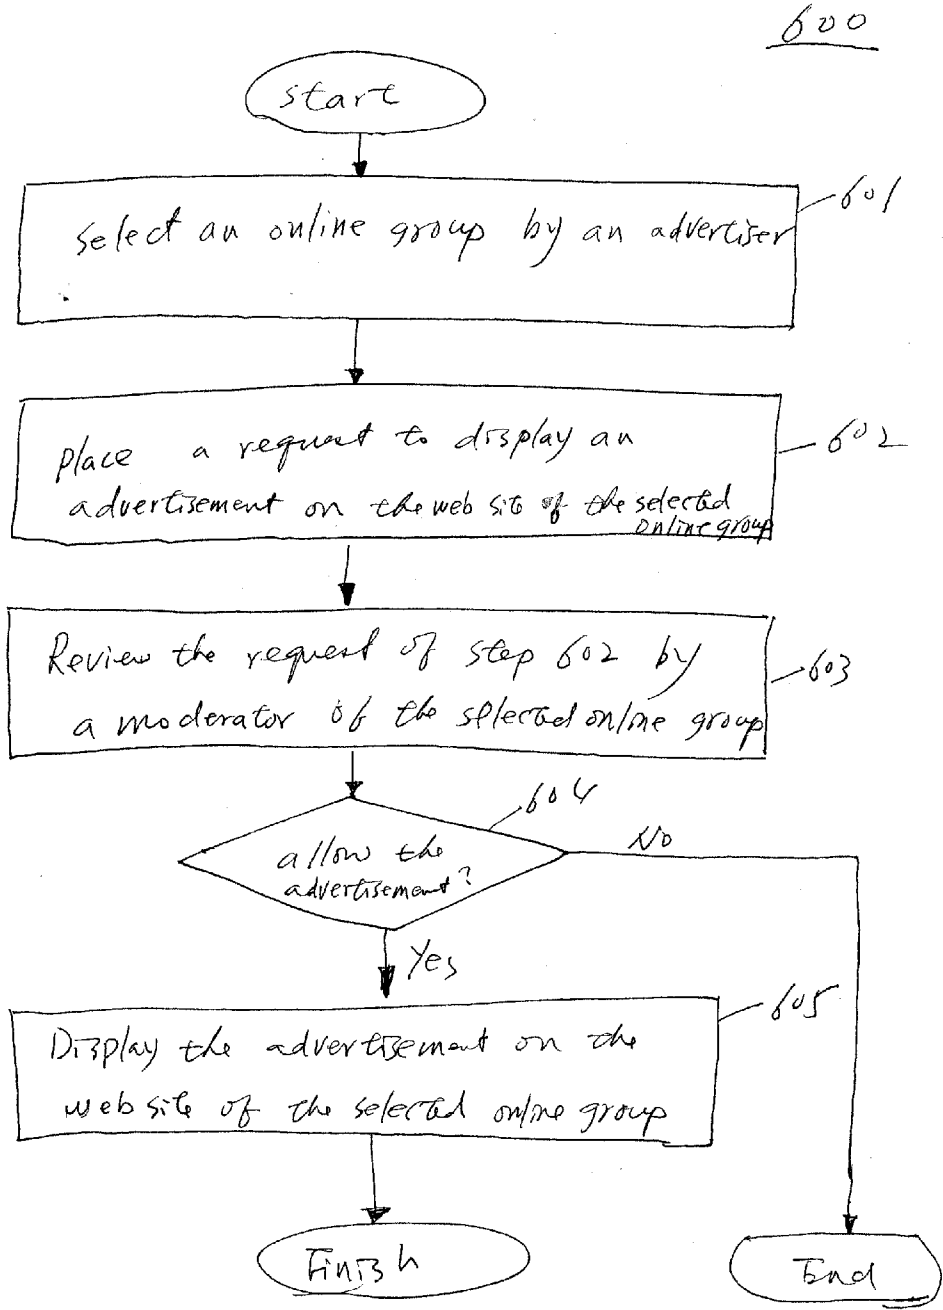 600
start
601
select an online group by an advertiser
602
place a request to display an
advertisement on the web site of the selected
online group
Review the request of step 602 by
603
a moderator of the selected online group
604
No
allow the
advertisement?
Yes
605
Display the advertisement on the
web site of the selected online group
Finish
End